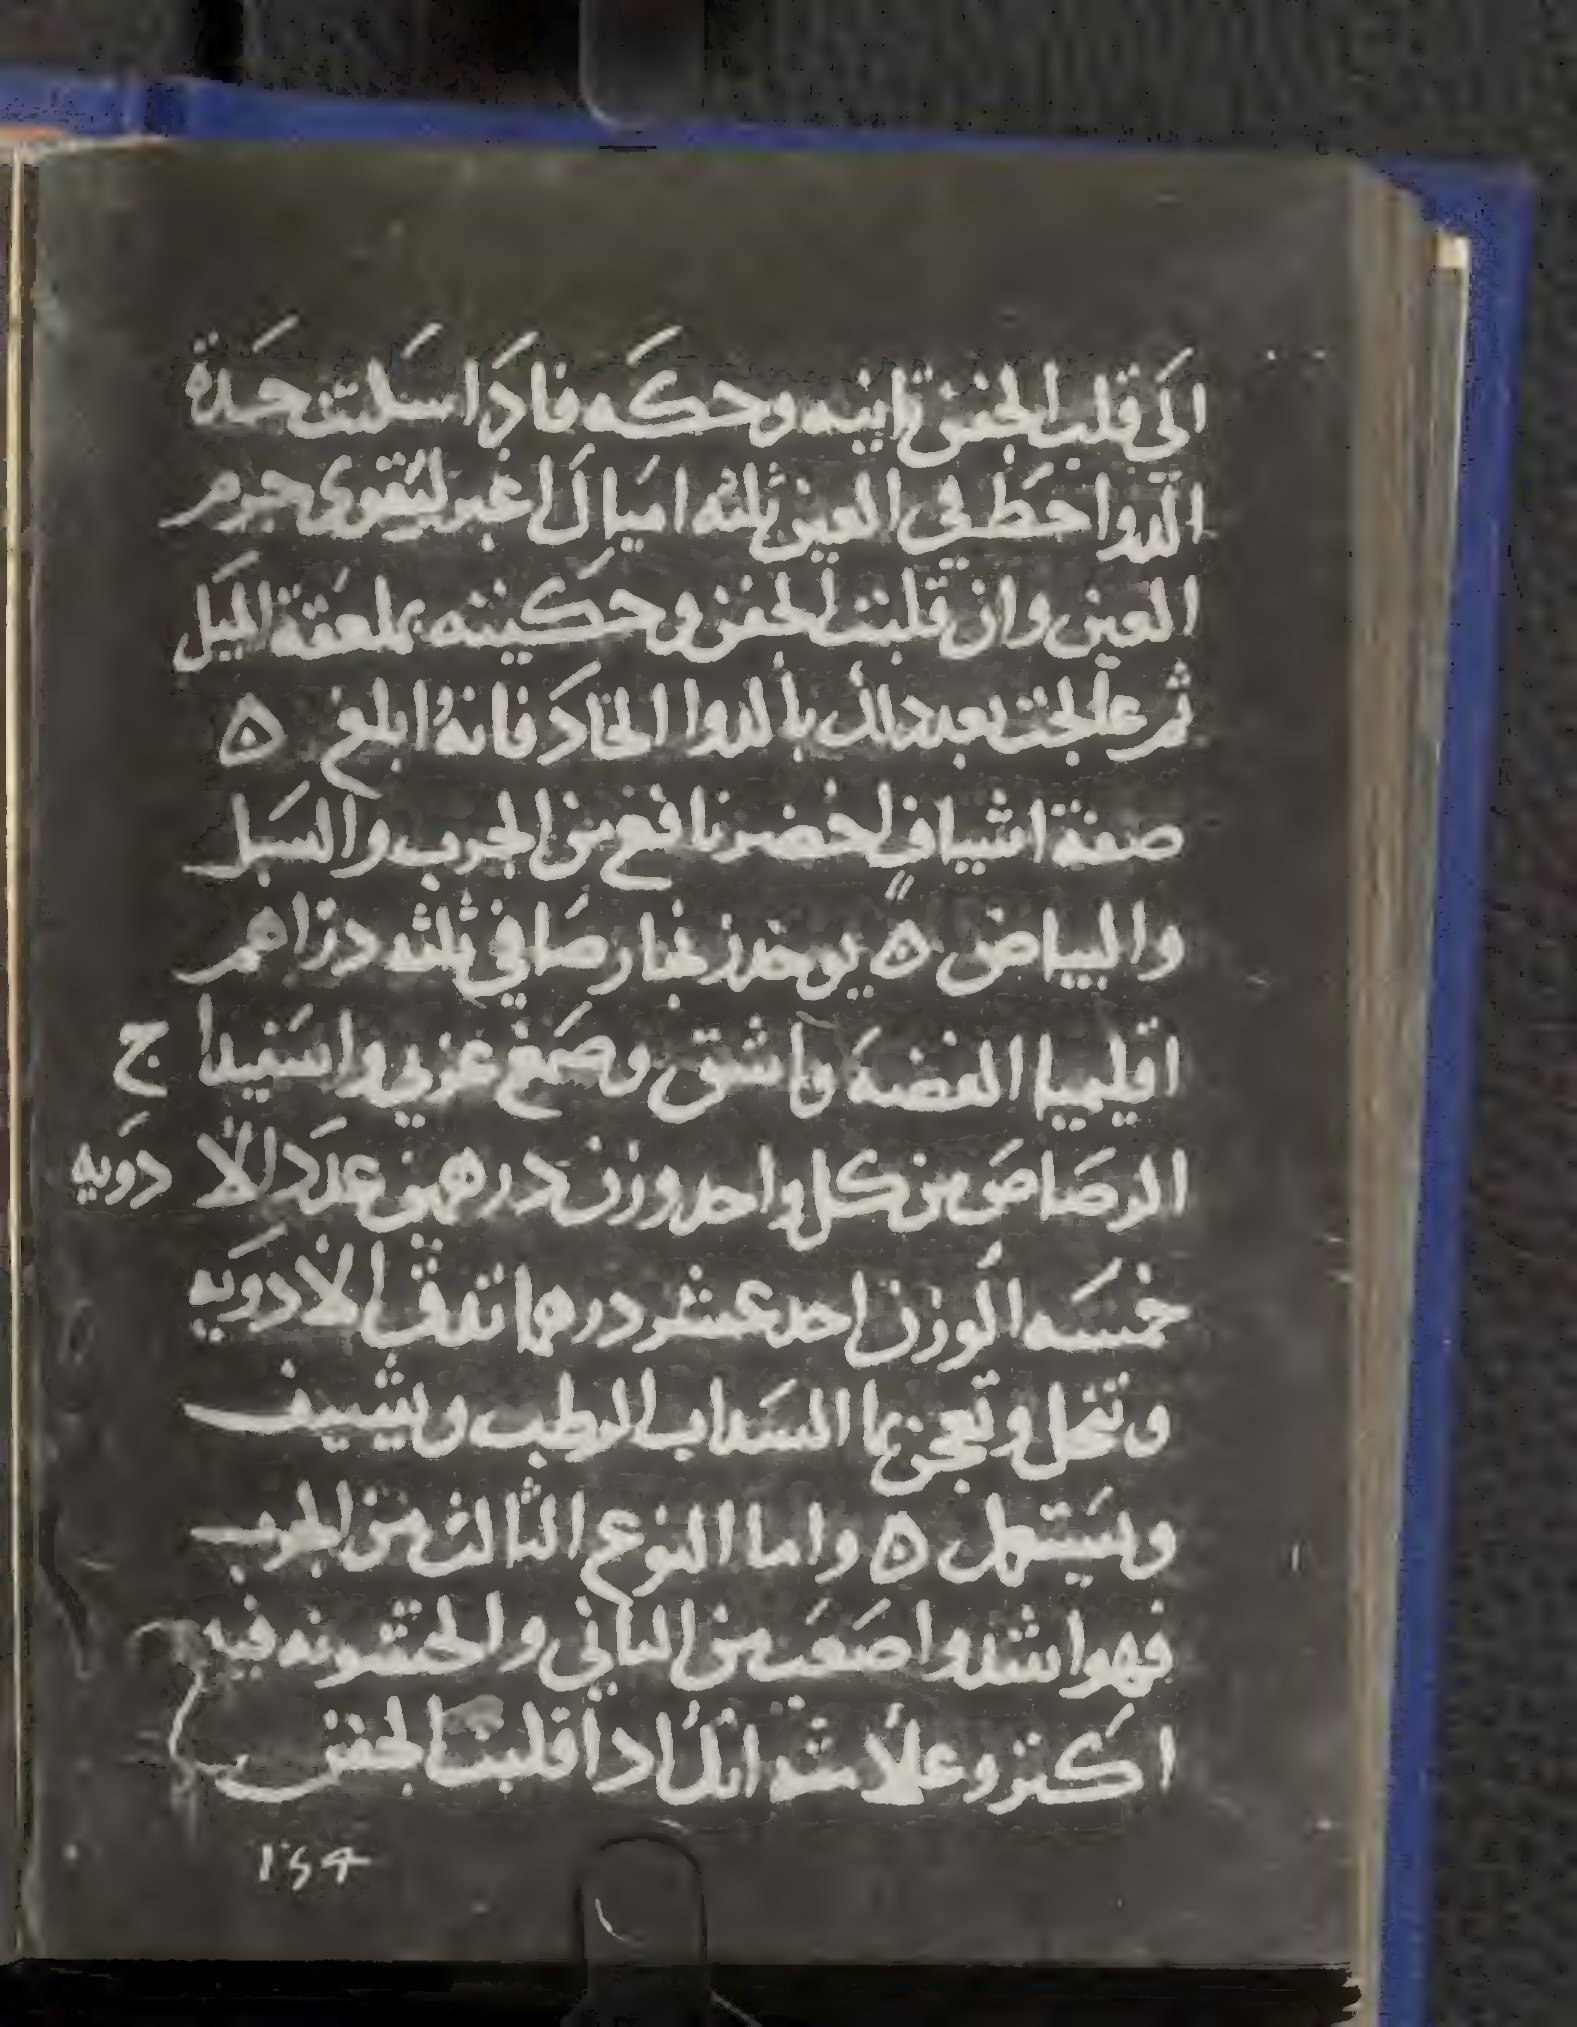 الى قلب الجفن تانيه وحكه فاذا سكنت حدة
الدوا حط في العين ثلثه اميال اغبر ليقوى جرم
العين وان قلبت الجفن وحكيته بملعقة الميل
ثم عالجت بعد دلك بالدوا الحاد فانه ابلغ ه
صفة اشياف اخضر نافع من الجرب والسبل
والبياض ه يوخد زنجار صافي ثلثه دراهم
اقليميا الفضه واشق وصمغ عربي واسفيداج
الرصاص من كل واحد وزن درهمين عدد الادويه
خمسه الوزن احد عشر درهما تدق الادويه
وتنخل وتعجن بما السداب الرطب ويشيف
ويستعمل ه واما النوع الثالث من الجرب
فهو اشد واصعب من الثاني والخشونه فيه
اكتر وعلامته انك ادا قلبت الجفن